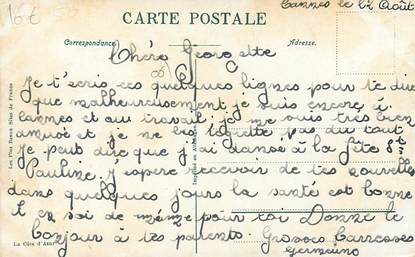 16€
Cannes le 12 Août
CARTE POSTALE
Correspondance
Adresse
Chère Georgette
Je t'ecris ces quelques lignes pour te dire
que malheureusement je suis encore à
Cannes et au travail je me suis tres bien
amusé et je ne regrette pas du tout
Je peut dire que j'ai dansé à la fête Ste
Pauline. J'espere recevoir de tes nouvelles
dans quelques jours la santé est bonne
et en soi de même pour toi Donne le
bonjour à tes parents. Grosses Carresses
Germaine
Les Plus Beaux Sites de France
La Côte d'Azur